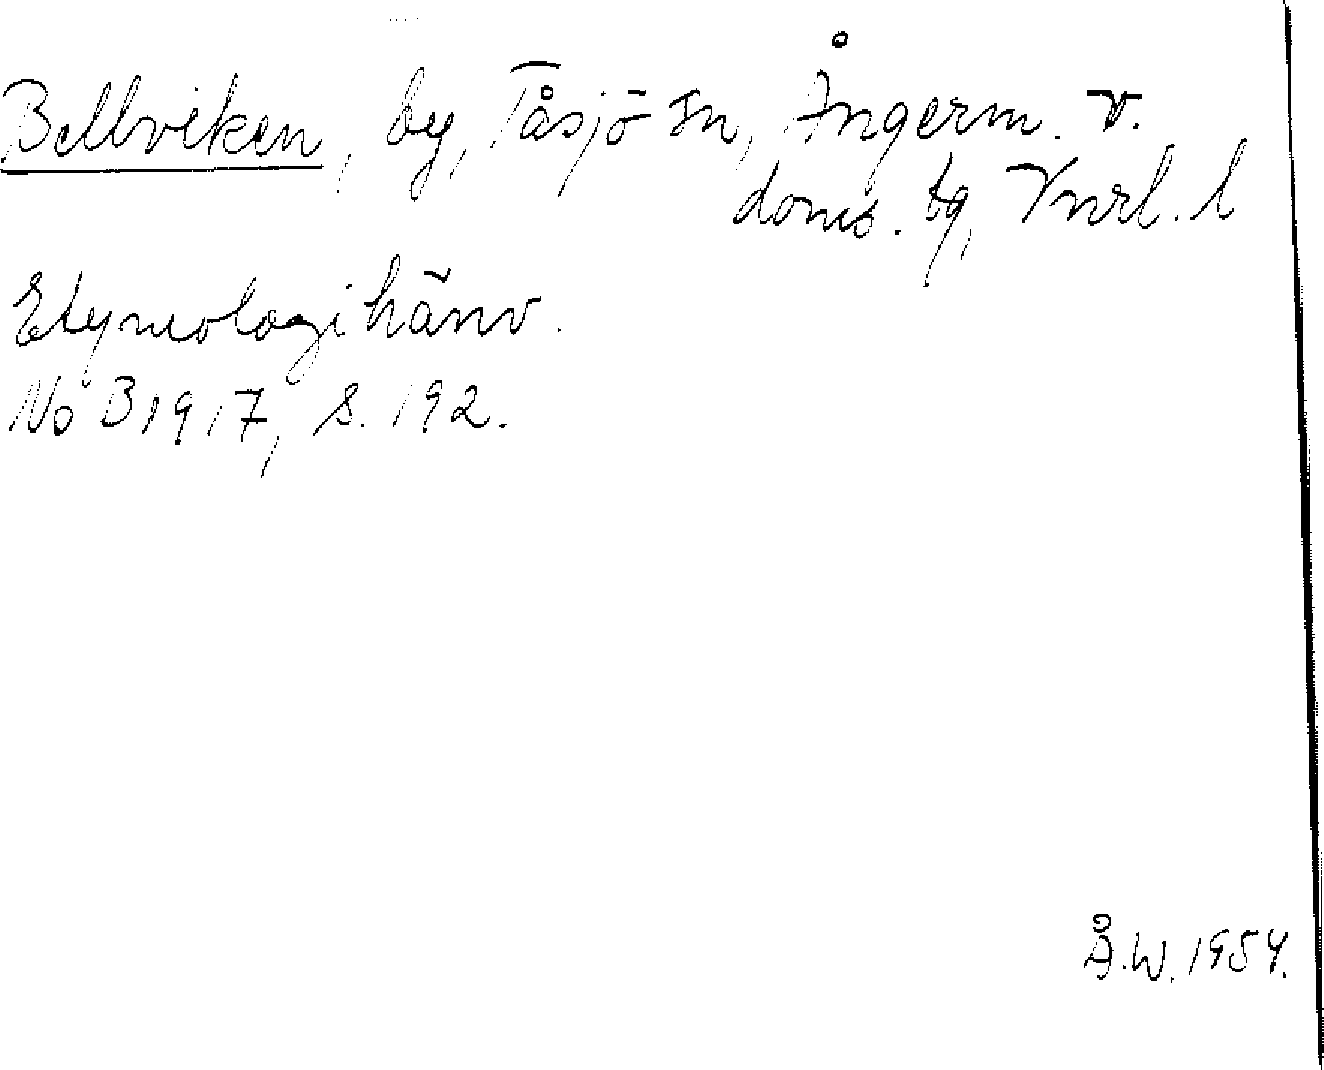 Bellviken, by, Tåsjö sn, Ångerm. v.
doms. tg, Vnrl. l
Etymologihänv.
NoB 1917, s. 192.
Å.W. 1954.